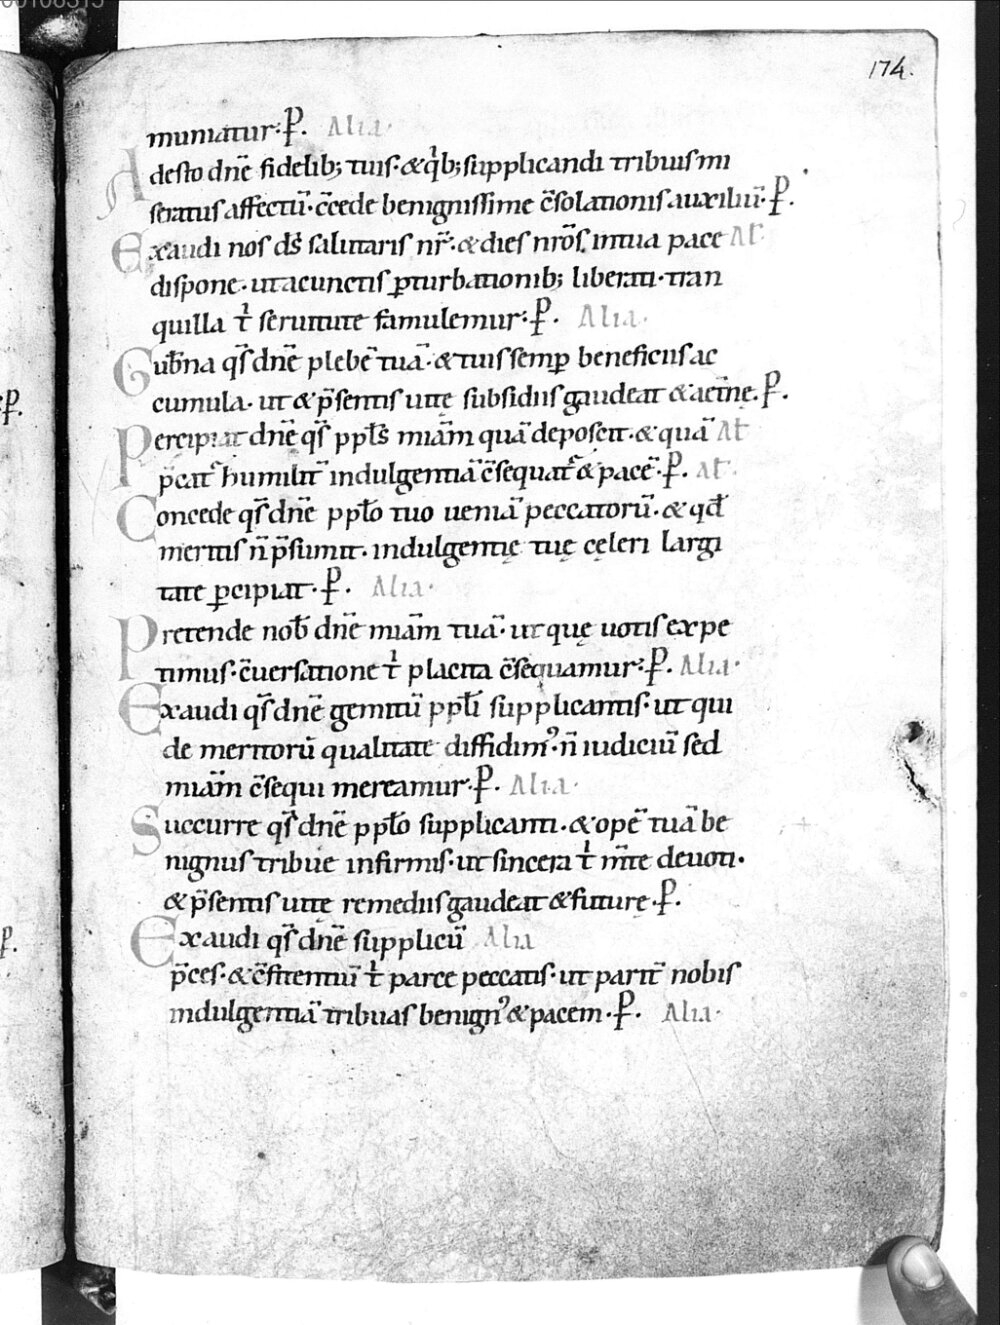 174.
muniatur: P̱. Alia·
Adesto dnē fidelib; tuis·&qͥb; supplicandi tribuis mi
seratus affectū· c̄cede benignissime c̄solationis auxiliū· P̱.
Exaudi nos dš salutaris nr̄·& dies nrōs, intua pace Al̄·
dispone· utacunctis ꝑturbationib; liberati· tran
quilla tͥ seruitute famulemur: P̱. Alia·
Gub̄na qs̄ dnē plebē tuā·&tuis semꝑ beneficiis ac
cumula· ut & p̄sentis uitę subsidiis gaudeat &aet̄nę. P̱.
Percipiat dnē qs̄ ppl̄s miām quā deposcit·& quā Al̄
p̄cat᷒ humilit̄ indulgentiā c̄sequat᷒ & pacē· P̱. Al̄·
Concede qs̄ dnē ppl̄o tuo ueniā peccatorū·& qd̄
meritis n̄ p̄sumit· indulgentię tuę cęleri largi
tate ꝑcipiat· P̱. Alia·
Pretende nob̄ dnē miām tuā· ut quę uotis expe
timus· c̄uersatione tͥ placita c̄sequamur: P̱. Alia·
Exaudi qs̄ dnē gemitū ppl̄i supplicantis· ut qui
de meritorū qualitate diffidimꝰ· n̄ iudiciū sed
miām c̄sequi mereamur· P̱. Alia·
Succurre qs̄ dnē ppl̄o supplicanti·& opē tuā be
nignus tribue infirmis· ut sincera tͥ m̄te deuoti·
& p̄sentis uitę remediis gaudeat &futurę· P̱.
Exaudi qs̄ dnē supplicū Alia
p̄ces·&c̄fitentiū tͥ parce peccatis· ut parit̄ nobis
indulgentiā tribuas benignꝰ & pacem· P̱. Alia·